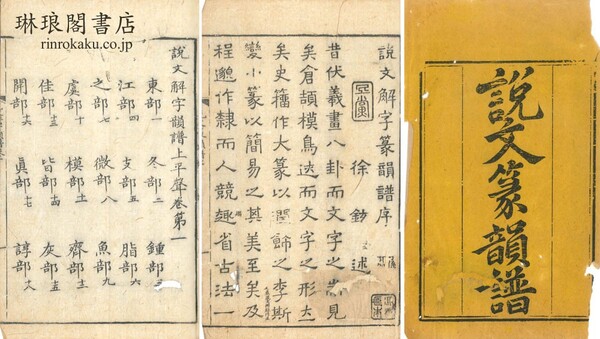 琳琅閣書店
rinrokaku.co.jp
說文篆韻譜
說文解字篆韻譜序
徐鉉述
昔伏羲畫八卦而文字之耑見
矣倉頡模鳥迹而文字之形立
矣史籀作大篆以潤飾之李斯
變小篆以簡易之其美至矣及
程邈作隸而人競趣省古法一
說文解字韻譜上平聲卷第一
東部一 冬部二 鍾部三
江部四 支部五 脂部六
之部七 微部八 魚部九
虞部十 模部十一 齊部十二
佳部十三 皆部十四 灰部十五
開部十六 眞部十七 諄部十八